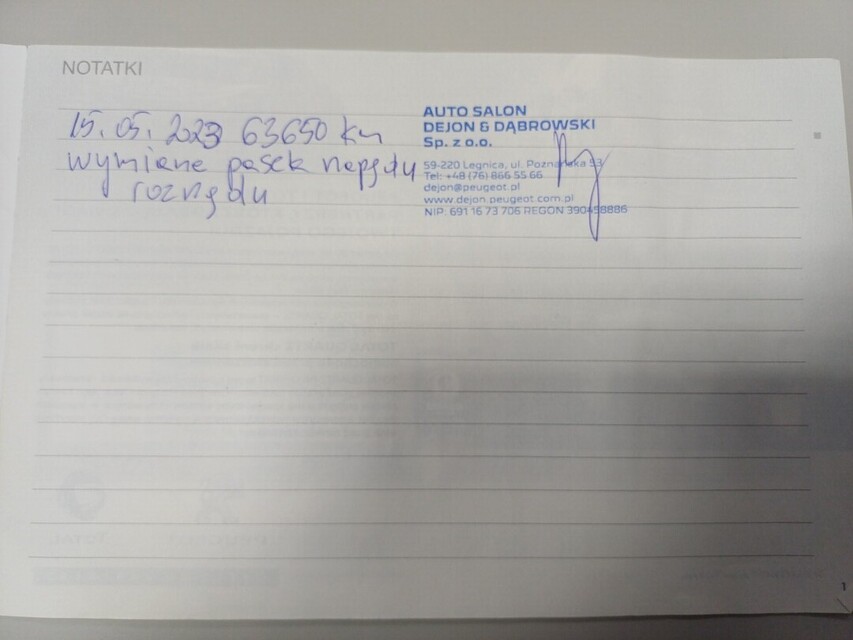 NOTATKI
15.05.2023 63650 km
wymiana pasek napędu
rozrządu
AUTO SALON
DEJON & DĄBROWSKI
Sp. z o.o.
59-220 Legnica, ul. Poznańska 53
Tel: +48 (76) 866 55 66
dejon@peugeot.pl
www.dejon.peugeot.com.pl
NIP: 691 16 73 706 REGON 390458886
1